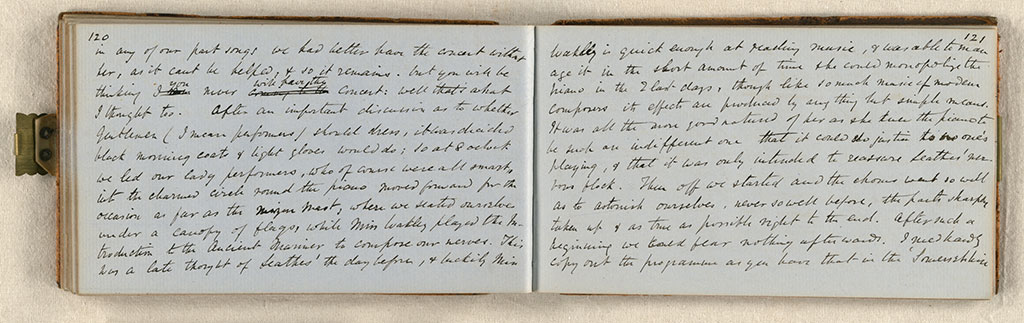 120
in any of our part songs we had better have the concert without
her, as it cant be helped, & so it remains. but you will be
thinking I never will have the concert: well that's what
I thought too. After an important discussion as to whether
Gentlemen (I mean performers) should dress, it was decided
black morning coats & light gloves would do; so at 8 oclock
we led our lady performers, who of course were all smart,
into the charmed circle round the piano moved forward for the
occasion as far as the mizen mast, where we seated ourselves
under a canopy of flags, while Miss Wakley played the In-
troduction to the Ancient Mariner to compose our nerves. This
was a late thought of Seathes' the day before, & luckily Miss
121
Wakley is quick enough at reading music, & was able to man
age it in the short amount of time she could monopolize the
piano in the 2 last days, though like so much music of modern
composers its effects are produced by any thing but simple means.
It was all the more good natured of her as she knew the piano to
be such an indifferent one that it could do justice to no one's
playing, & that it was only intended to reassure Seathes' ner-
vous flock. Then off we started and the chorus went so well
as to astonish ourselves. never so well before, the parts sharply
taken up & as true as possible right to the end. After such a
beginning we could fear nothing afterwards. I need hardly
copy out the programme as you have that in the Somersetshire